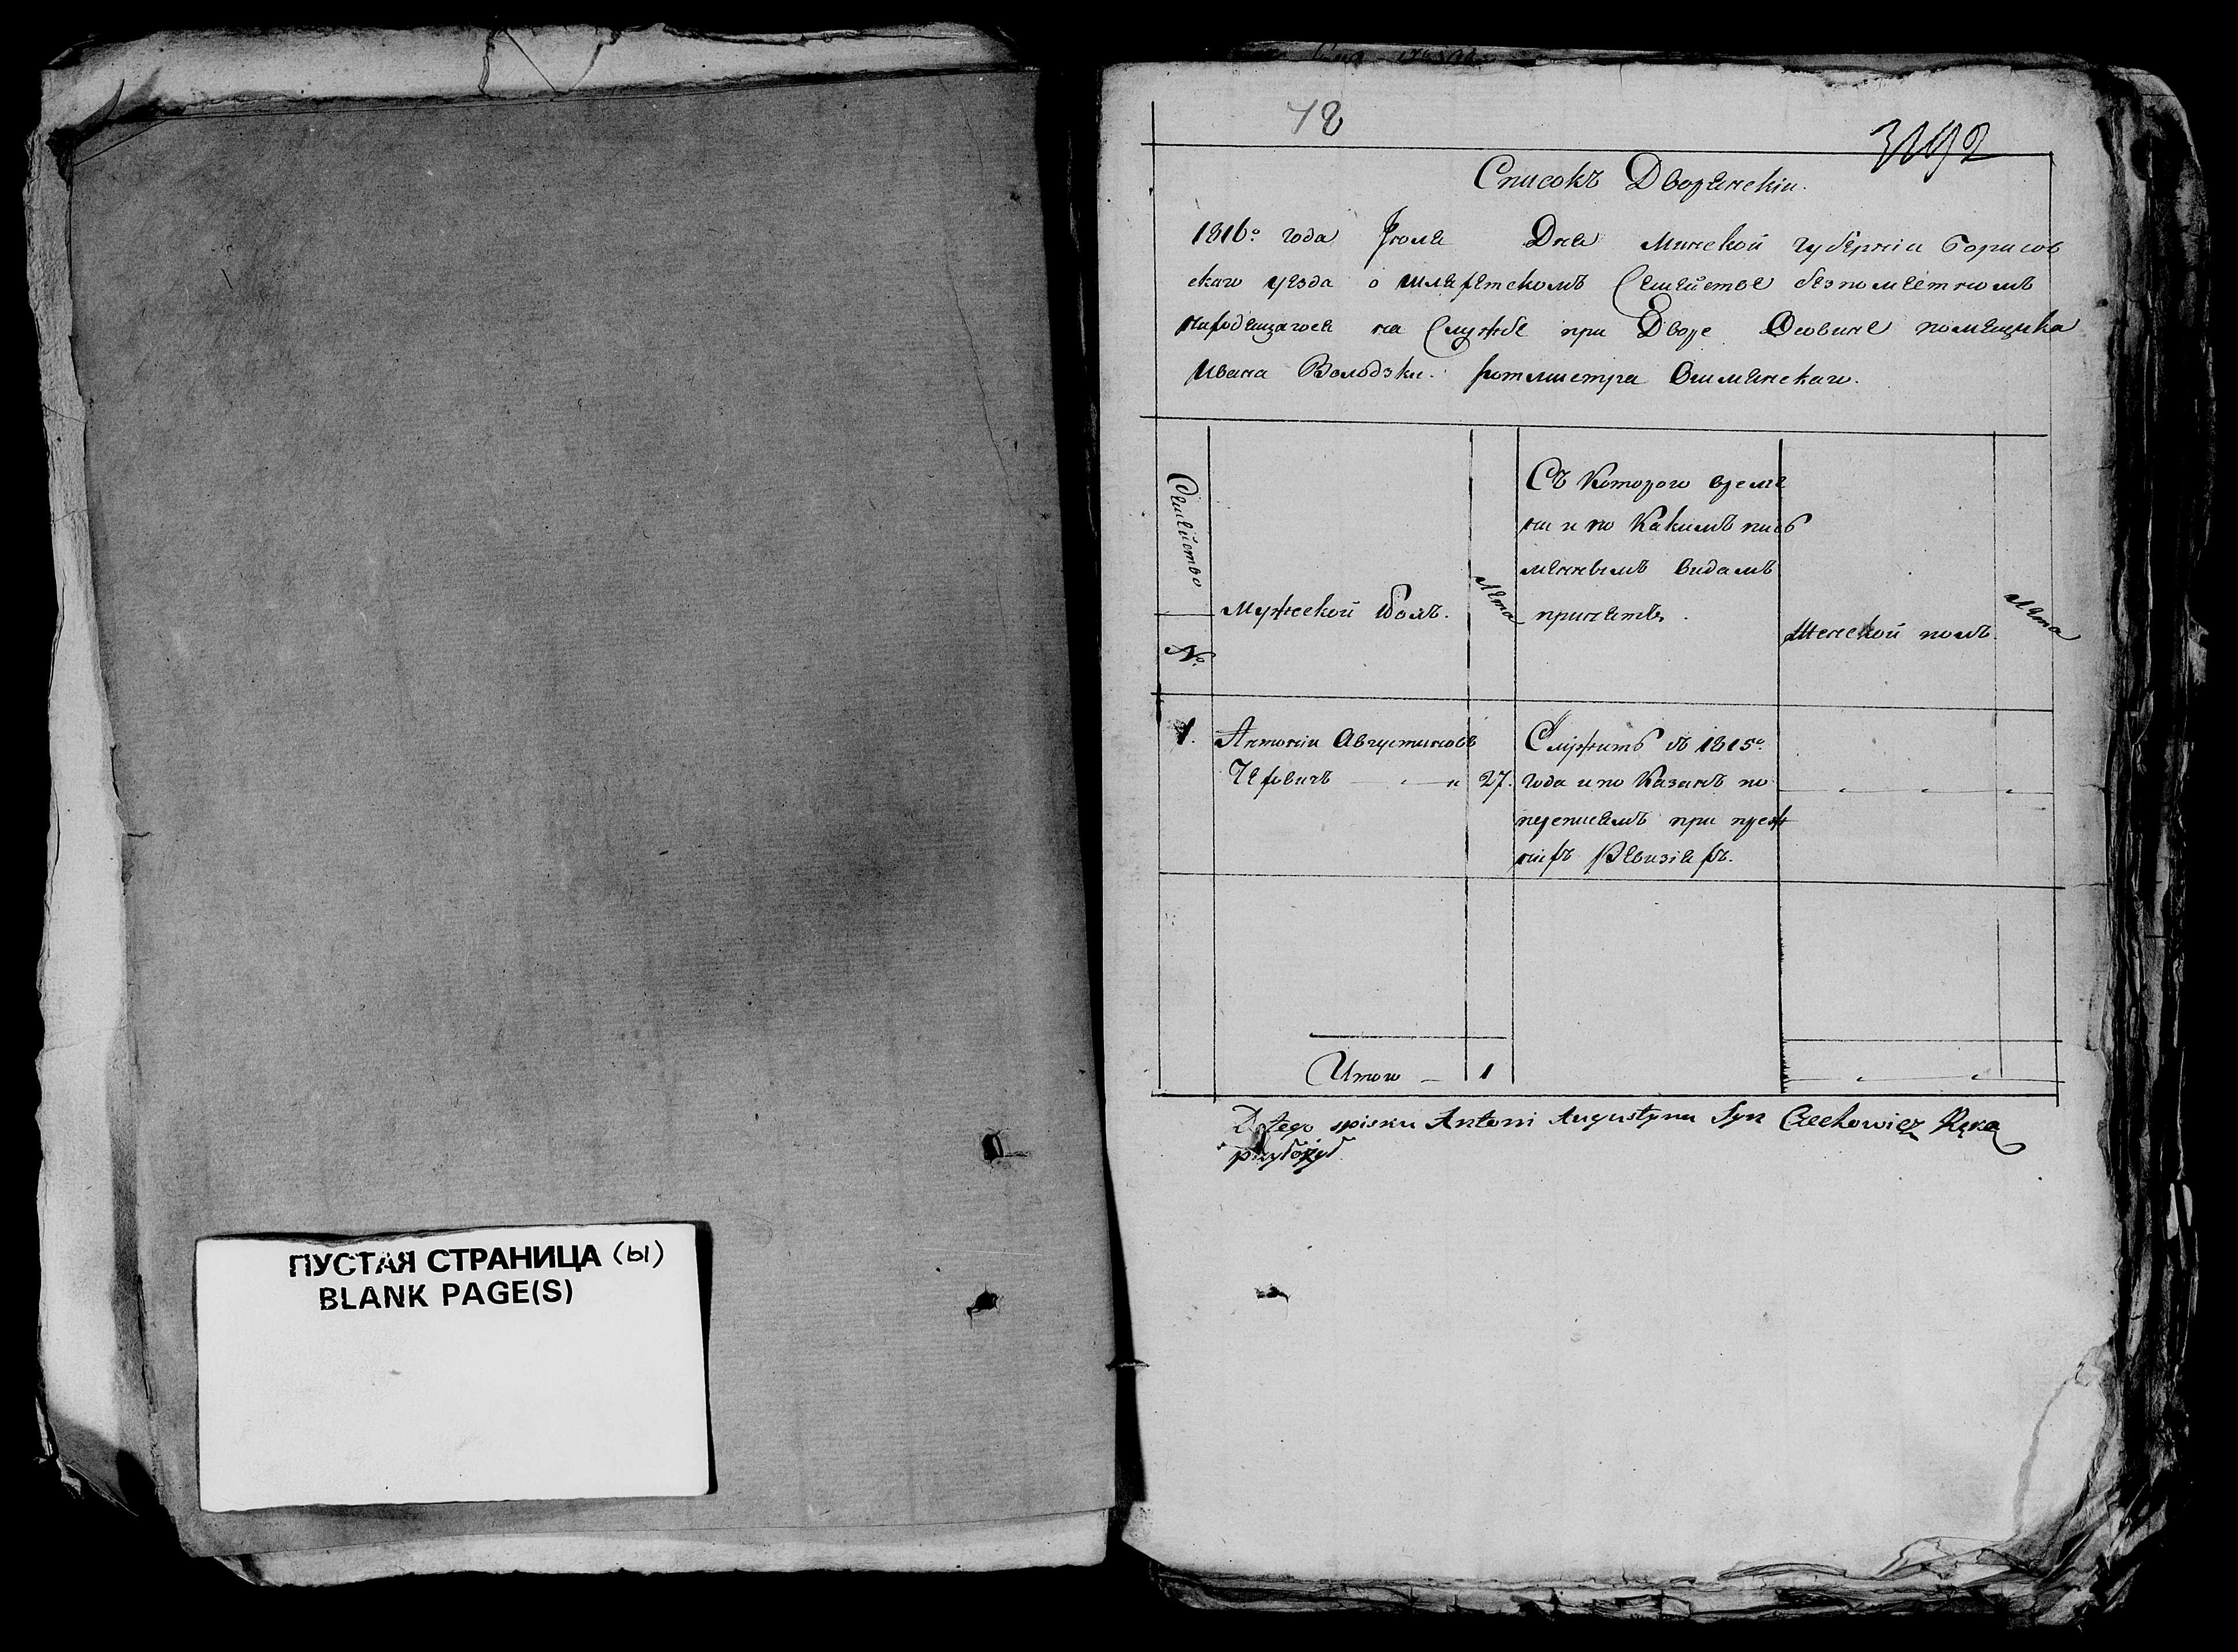 ПУСТАЯ СТРАНИЦА (ы)
BLANK PAGE(S)
78
Списокъ Дворянскіи.
1816º года Іюля Дня Минской губерніи борисов
скаго уезда о шляхетскомъ Семействе безпоместномъ
находящагося на Службе при Дворе Осовине помещика
Ивана Володзки. ротмистра Ошмянскаго.
Семейство
№
Мужеской Полъ.
Лета
Съ Котораго време
ни и по Какимъ пись
меннымъ видамъ
принятъ.
Женской полъ.
Лета
1.
Антоніи Августиновъ
Чеховичъ 27.
Служитъ съ 1815º
года и по Казанъ по
переписямъ при преж
нихъ Ревизіяхъ.
Итого — 1
Do tego spisku Antoni Augustyna Syn Czechowicz Rękę
przyłożył